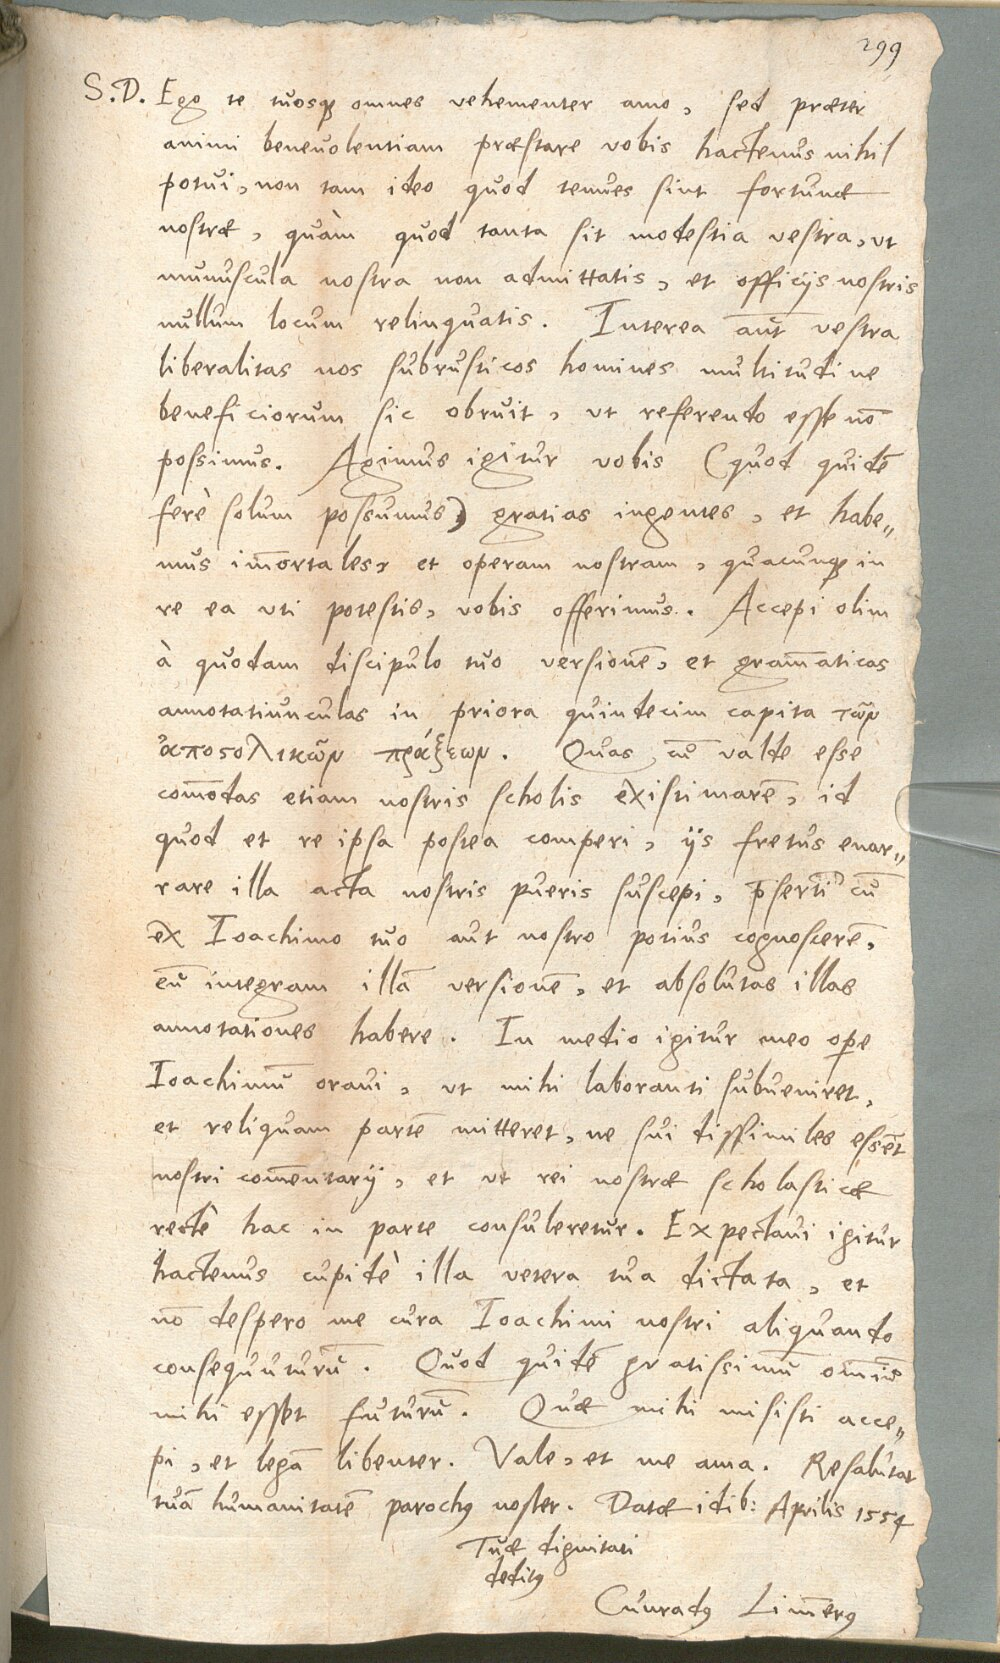 299
S.D. Ego te tuosq́ꝫ omnes vehementer amo, sed præter
animi beneuolentiam præstare vobis hactenus nihil
potui, non tam ideo quod tenues sint fortunæ
nostræ, quàm quod tanta sit modestia vestra, vt
munuscula nostra non admittatis, et officijs nostris
nullum locum relinquatis. Interea aūt vestra
liberalitas nos subrusticos homines multitudine
beneficiorum sic obruit, vt referendo esse nō
possimus. Agimus igitur vobis (quod quidē
ferè solum possumus) gratias ingentes, et habe„
mus im̄ortales, et operam nostram, quacunqꝫ in
re ea vti potestis, vobis offerimus. Accepi olim
à quodam discipulo tuo versionē, et gram̄aticas
annotatiunculas in priora quindecim capita τῶν
ἀποςολικῶν πράξεων. Quas cū valde esse
com̄odas etiam nostris scholis existimarē, id
quod et re ipsa postea comperi, ijs fretus enar„
rare illa acta nostris pueris suscepi, p̄sertī cū
ex Ioachimo tuo aut nostro potius cognoscerē,
eū integram illā versionē, et absolutas illas
annotationes habere. In medio igitur meo oꝑe
Ioachimū oraui, vt mihi laboranti subueniret,
et reliquam partē mitteret, ne sui dissimiles essēt
nostri com̄entarij, et vt rei nostræ scholasticæ
rectè hac in parte consuleretur. Expectaui igitur
hactenus cupidè illa vetera tua dictata, et
nō despero me cura Ioachimi nostri aliquando
consequuturū. Quod quidē gratissimū om̄iū
mihi esset futurū. Quæ mihi misisti acce„
pi, et legā libenter. Vale, et me ama. Resalutat
tuā humanitatē parochꝰ noster. Datæ idib: Aprilis 1554
Tuæ dignitati
deditꝰ
Cunradꝰ Lim̄erꝰ